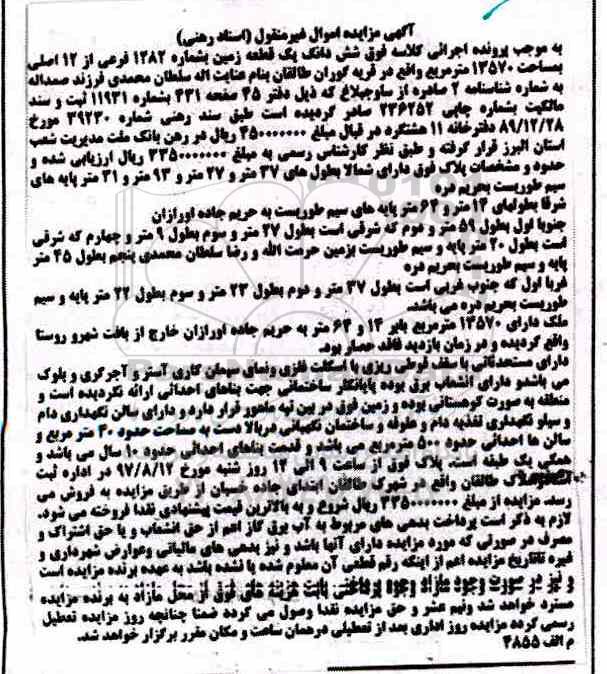 آگهی مزایده اموال غیرمنقول (اسناد رهنی)
به موجب پرونده اجرائی کلاسه فوق شش دانگ یک قطعه زمین بشماره ۱۳۸۲ فرعی از ۱۲ اصلی
بمساحت ۱۳۵۷۰ مترمربع واقع در قریه گوران طالقان بنام عنایت اله سلطان محمدی فرزند صمداله
به شماره شناسنامه ۲ صادره از ساوجبلاغ که ذیل دفتر ۴۵ صفحه ۴۳۱ بشماره ۱۱۹۳۱ ثبت و سند
مالکیت بشماره چاپی ۲۳۶۲۵۲ صادر گردیده است طبق سند رهنی شماره ۳۹۲۳۰ مورخ
۸۹/۱۲/۲۸ دفترخانه ۱۱ هشتگرد در قبال مبلغ ۴۵۰۰۰۰۰۰۰ ریال در رهن بانک ملت مدیریت شعب
استان البرز قرار گرفته و طبق نظر کارشناس رسمی به مبلغ ۳۳۵۰۰۰۰۰۰۰ ریال ارزیابی شده و
حدود و مشخصات پلاک فوق دارای شمالا بطول های ۳۷ متر و ۲۷ متر و ۹۳ متر و ۳۱ متر پایه های
سیم طوریست بحریم دره
شرقا بطولهای ۱۴ متر و ۶۴ متر پایه های سیم طوریست به حریم جاده اورازان
جنوبا اول بطول ۵۹ متر و دوم که شرقی است بطول ۲۷ متر و سوم بطول ۹ متر و چهارم که شرقی
است بطول ۲۰ متر پایه و سیم طوریست بزمین حرمت الله و رضا سلطان محمدی پنجم بطول ۴۵ متر
پایه و سیم طوریست بحریم دره
غربا اول که جنوب غربی است بطول ۳۷ متر و دوم بطول ۲۳ متر و سوم بطول ۲۲ متر پایه و سیم
طوریست بحریم دره می باشد.
ملک دارای ۱۳۵۷۰ مترمربع بابر ۱۴ و ۶۴ متر به حریم جاده اورازان خارج از بافت شهرو روستا
واقع گردیده و در زمان بازدید فاقد حصار بود.
دارای مستحدثاتی با سقف قوطی ریزی با اسکلت فلزی ونمای سیمان کاری آستر و آجرگری و بلوک
می باشدو دارای انشعاب برق بوده پایانکار ساختمانی جهت بناهای احداثی ارائه نگردیده است و
منطقه به صورت کوهستانی بوده و زمین فوق در بین تپه ماهور قرار دارد و دارای سالن نگهداری دام
و سیلو نگهداری تغذیه دام و علوفه و ساختمان نگهبانی دربالا دست به مساحت حدود ۳۰ متر مربع و
سالن ها احداثی حدود ۵۰۰ مترمربع می باشد و قدمت بناهای احداثی حدود ۱۰ سال می باشد و
همگی یک طبقه است. پلاک فوق از ساعت ۹ الی ۱۲ روز شنبه مورخ ۹۷/۸/۱۲ در اداره ثبت
اسنادواملاک طالقان واقع در شهرک طالقان ابتدای جاده خسبان از طریق مزایده به فروش می
رسد. مزایده از مبلغ ۳۳۵۰۰۰۰۰۰۰ ریال شروع و به بالاترین قیمت پیشنهادی نقدا فروخته می شود.
لازم به ذکر است پرداخت بدهی های مربوط به آب برق گاز اعم از حق انشعاب و یا حق اشتراک و
مصرف در صورتی که مورد مزایده دارای آنها باشد و نیز بدهی های مالیاتی وعوارض شهرداری و
غیره تاتاریخ مزایده اعم از اینکه رقم قطعی آن معلوم شده یا نشده باشد به عهده برنده مزایده است
و نیز در صورت وجود مازاد وجوه پرداختی بابت هزینه های فوق از محل مازاد به برنده مزایده
مسترد خواهد شد ونیم عشر و حق مزایده نقدا وصول می گردد ضمنا چنانچه روز مزایده تعطیل
رسمی گردد مزایده روز اداری بعد از تعطیلی درهمان ساعت و مکان مقرر برگزار خواهد شد.
م الف ۴۸۵۵